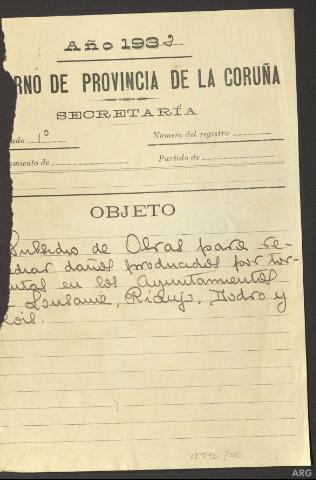 Año 1932
RNO DE PROVINCIA DE LA CORUÑA
SECRETARÍA
ado 1º Número del registro
miento de Partido de
OBJETO
Subsidio de Obras para re-
diar daños producidos por tor-
ntas en los Ayuntamientos
Lousame, Rianjo, Dodro y
ois.
ARG